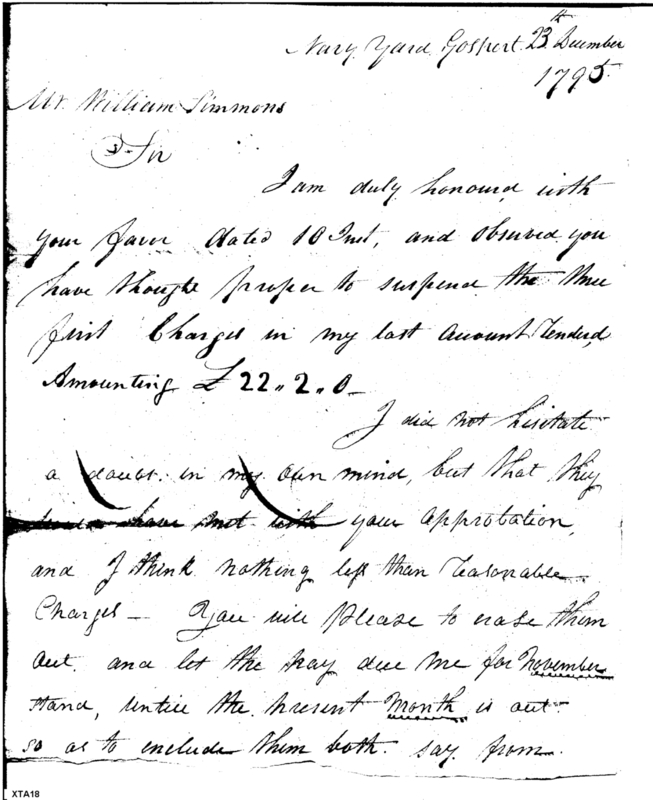 Navy Yard Gosport 23th December
1795
Mr. William Simmons
Sir
I am duly honoured with
your favor dated 10 Inst, and observed you
have thought proper to suspend the three
first Charges in my last Account Renderd,
Amounting £ 22..2..0
I did not hesitate
a doubt in my own mind, but that they
have met with your approbation,
and I think nothing less than reasonable
Charges - You will please to erase them
out and let the pay due me for November
stand, untill the present Month is out
so as to include them both. say from
XTA18